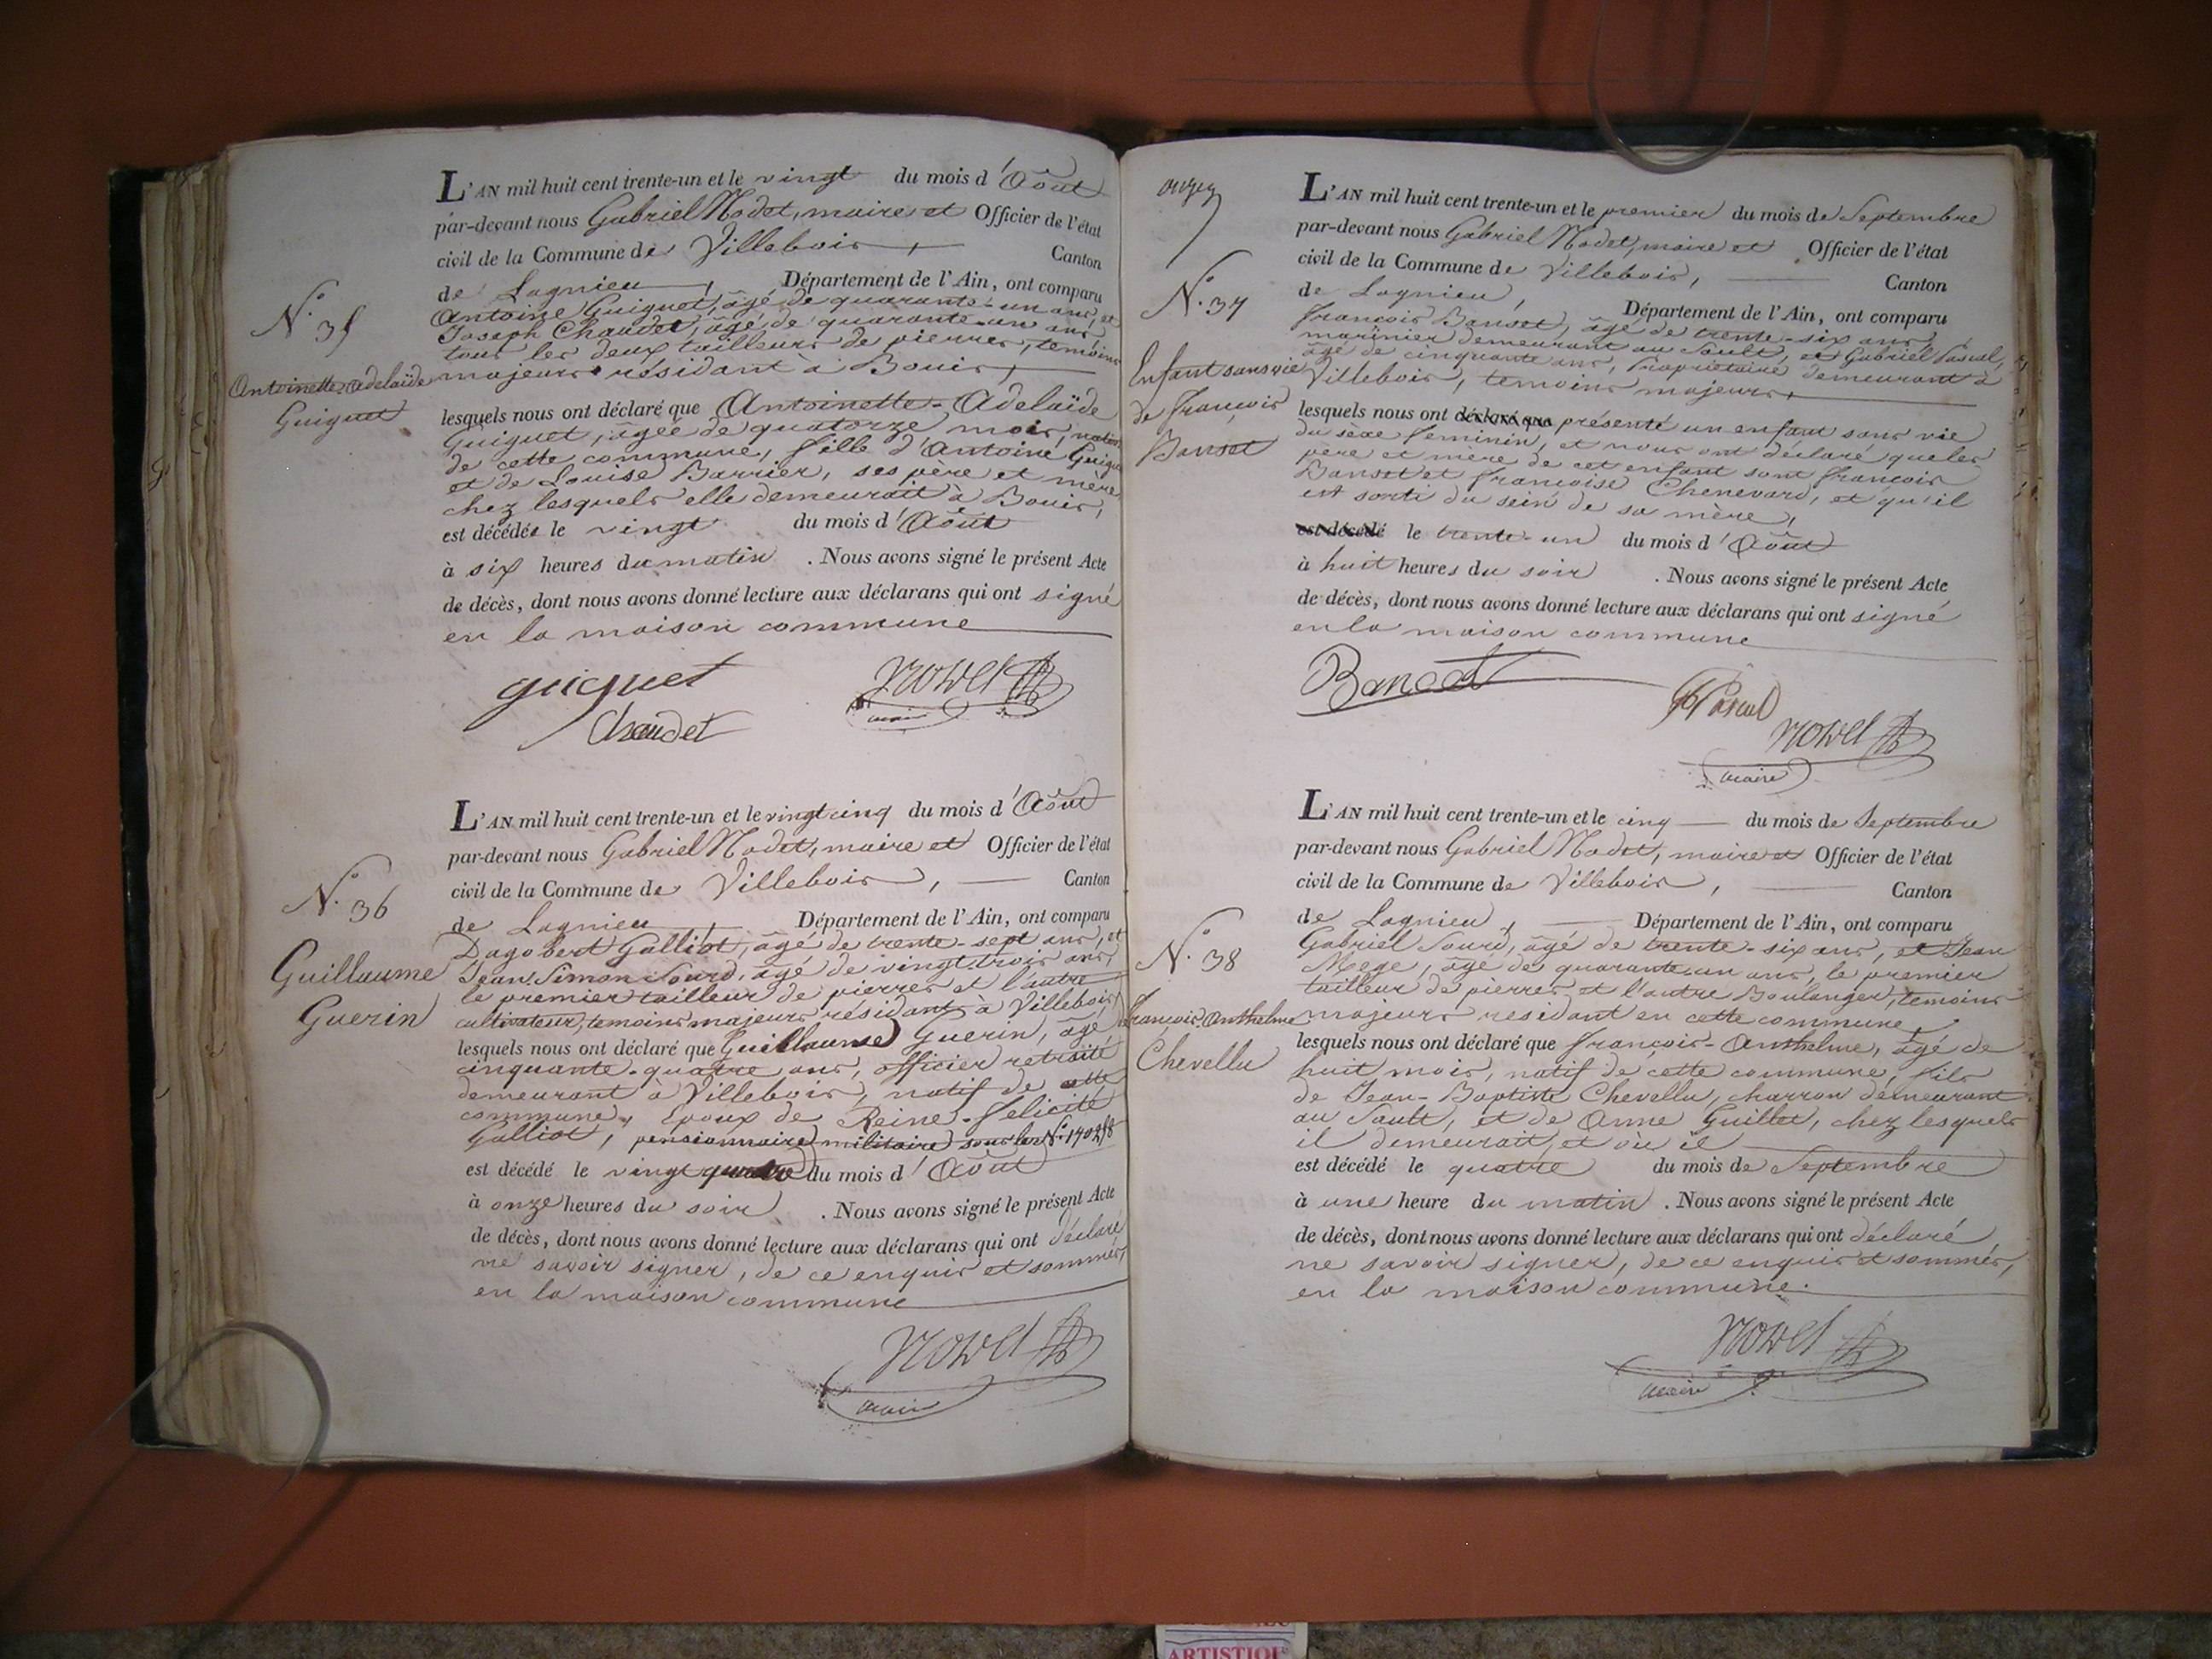 L'AN mil huit cent trente-un et le vingt du mois d'Août
par-devant nous Gabriel Nodet, maire et Officier de l'état
civil de la Commune de Villebois, Canton
de Lagnieu, Département de l'Ain, ont comparu
Antoine Guiguet, âgé de quarante-un ans, et
Joseph Chaudet, âgé de quarante-un ans,
tous les deux tailleurs de pierres, temoins
majeurs résidant à Bouis,
N.o 35
Antoinette-Adelaïde
Guiguet
lesquels nous ont déclaré que Antoinette-Adelaïde
Guiguet, âgée de quatorze mois, native
de cette commune, fille d'Antoine Guiguet
et de Louise Barrier, ses père et mère
chez lesquels elle demeurait à Bouis,
est décédée le vingt du mois d'Août
à six heures du matin. Nous avons signé le présent Acte
de décès, dont nous avons donné lecture aux déclarans qui ont signé
en la maison commune
guiguet
Chaudet
Nodet
maire
L'AN mil huit cent trente-un et le vingt cinq du mois d'Août
par-devant nous Gabriel Nodet, maire et Officier de l'état
civil de la Commune de Villebois, Canton
de Lagnieu, Département de l'Ain, ont comparu
N.o 36
Guillaume
Guerin
Dagobert Galliot, âgé de trente-sept ans, et
Jean Simon Sourd, âgé de vingt trois ans,
le premier tailleur de pierres et l'autre
cultivateur, temoins majeurs résidant à Villebois,
lesquels nous ont déclaré que Guillaume Guerin, âgé
cinquante-quatre ans, officier retraité
demeurant à Villebois, natif de cette
commune, Epoux de Reine-Felicité
Galliot, pensionnaire militaire sous le N.o
est décédé le vingt quatre du mois d'Août
à onze heures du soir. Nous avons signé le présent Acte
de décès, dont nous avons donné lecture aux déclarans qui ont déclaré
ne savoir signer, de ce enquis et sommés,
en la maison commune
Nodet
maire
L'AN mil huit cent trente-un et le premier du mois de Septembre
par-devant nous Gabriel Nodet, maire et Officier de l'état
civil de la Commune de Villebois, Canton
de Lagnieu, Département de l'Ain, ont comparu
N.o 37
Enfant sans vie
de François
Banset
François Banset, âgé de trente-six ans,
marinier demeurant au Sault, et Gabriel Pascal,
âgé de cinquante ans, Propriétaire demeurant à
Villebois, temoins majeurs,
lesquels nous ont déclaré que présenté un enfant sans vie
du sèxe feminin, et nous ont déclaré que les
père et mère de cet enfant sont François
Banset et Françoise Chenevard, et qu'il
est sorti du sein de sa mère,
est décédé le trente-un du mois d'Août
à huit heures du soir. Nous avons signé le présent Acte
de décès, dont nous avons donné lecture aux déclarans qui ont signé
en la maison commune
Banset
Pascal
Nodet
maire
L'AN mil huit cent trente-un et le cinq du mois de Septembre
par-devant nous Gabriel Nodet, maire et Officier de l'état
civil de la Commune de Villebois, Canton
de Lagnieu, Département de l'Ain, ont comparu
N.o 38
François-Anthelme
Chevellu
Gabriel Sourd, âgé de trente-six ans, et Jean
Mege, âgé de quarante-un ans, le premier
tailleur de pierres et l'autre Boulanger, temoins
majeurs residant en cette commune,
lesquels nous ont déclaré que François-Anthelme, âgé de
huit mois, natif de cette commune, fils
de Jean-Baptiste Chevellu, charron demeurant
au Sault, et de Anne Guillet, chez lesquels
il demeurait, et où il
est décédé le quatre du mois de Septembre
à une heure du matin. Nous avons signé le présent Acte
de décès, dont nous avons donné lecture aux déclarans qui ont déclaré
ne savoir signer, de ce enquis et sommés,
en la maison commune.
Nodet
maire